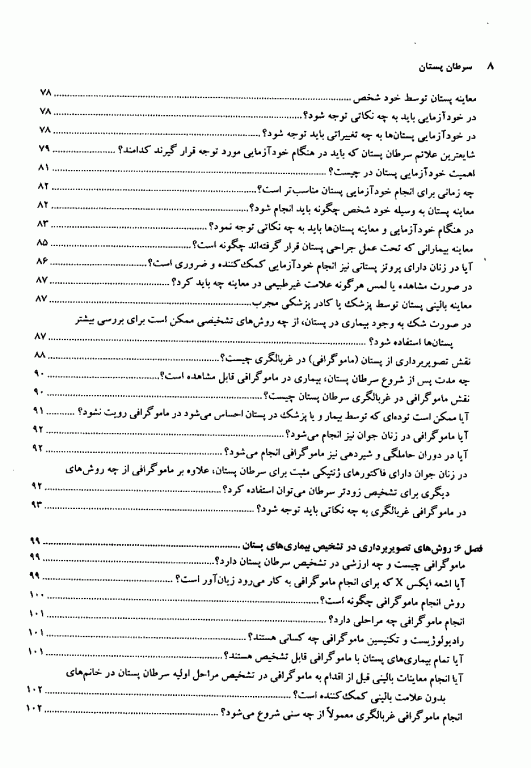 ۸ سرطان پستان
معاینه پستان توسط خود شخص ........ ۷۸
در خودآزمایی باید به چه نکاتی توجه شود؟ ........ ۷۸
در خودآزمایی پستان‌ها به چه تغییراتی باید توجه شود؟ ........ ۷۸
شایعترین علائم سرطان پستان که باید در هنگام خودآزمایی مورد توجه قرار گیرند کدامند؟ ........ ۷۹
اهمیت خودآزمایی پستان در چیست؟ ........ ۸۱
چه زمانی برای انجام خودآزمایی پستان مناسب‌تر است؟ ........ ۸۲
معاینه پستان به وسیله خود شخص چگونه باید انجام شود؟ ........ ۸۲
در هنگام خودآزمایی و معاینه پستان‌ها باید به چه نکاتی توجه نمود؟ ........ ۸۳
معاینه بیمارانی که تحت عمل جراحی پستان قرار گرفته‌اند چگونه است؟ ........ ۸۵
آیا در زنان دارای پروتز پستانی نیز انجام خودآزمایی کمک‌کننده و ضروری است؟ ........ ۸۶
در صورت مشاهده یا لمس هرگونه علامت غیرطبیعی در معاینه چه باید کرد؟ ........ ۸۷
معاینه بالینی پستان توسط پزشک یا کادر پزشکی مجرب ........ ۸۷
در صورت شک به وجود بیماری در پستان، از چه روش‌های تشخیصی ممکن است برای بررسی بیشتر
پستان‌ها استفاده شود؟ ........ ۸۷
نقش تصویربرداری از پستان (ماموگرافی) در غربالگری چیست؟ ........ ۸۸
چه مدت پس از شروع سرطان پستان، بیماری در ماموگرافی قابل مشاهده است؟ ........ ۹۰
نقش ماموگرافی در غربالگری سرطان پستان چیست؟ ........ ۹۰
آیا ممکن است توده‌ای که توسط بیمار و یا پزشک در پستان احساس می‌شود در ماموگرافی رویت نشود؟ ........ ۹۱
آیا ماموگرافی در زنان جوان نیز انجام می‌شود؟ ........ ۹۲
آیا در دوران حاملگی و شیردهی نیز ماموگرافی انجام می‌شود؟ ........ ۹۲
در زنان جوان دارای فاکتورهای ژنتیکی مثبت برای سرطان پستان، علاوه بر ماموگرافی از چه روش‌های
دیگری برای تشخیص زودتر سرطان می‌توان استفاده کرد؟ ........ ۹۲
در ماموگرافی غربالگری به چه نکاتی باید توجه شود؟ ........ ۹۳
فصل ۶: روش‌های تصویربرداری در تشخیص بیماری‌های پستان ........ ۹۹
ماموگرافی چیست و چه ارزشی در تشخیص سرطان پستان دارد؟ ........ ۹۹
آیا اشعه ایکس X که برای انجام ماموگرافی به کار می‌رود زیان‌آور است؟ ........ ۹۹
روش انجام ماموگرافی چگونه است؟ ........ ۱۰۰
انجام ماموگرافی چه مراحلی دارد؟ ........ ۱۰۱
رادیولوژیست و تکنیسین ماموگرافی چه کسانی هستند؟ ........ ۱۰۱
آیا تمام بیماری‌های پستان با ماموگرافی قابل تشخیص هستند؟ ........ ۱۰۱
آیا انجام معاینات بالینی قبل از اقدام به ماموگرافی در تشخیص مراحل اولیه سرطان پستان در خانم‌های
بدون علامت بالینی کمک‌کننده است؟ ........ ۱۰۲
انجام ماموگرافی غربالگری معمولاً از چه سنی شروع می‌شود؟ ........ ۱۰۲